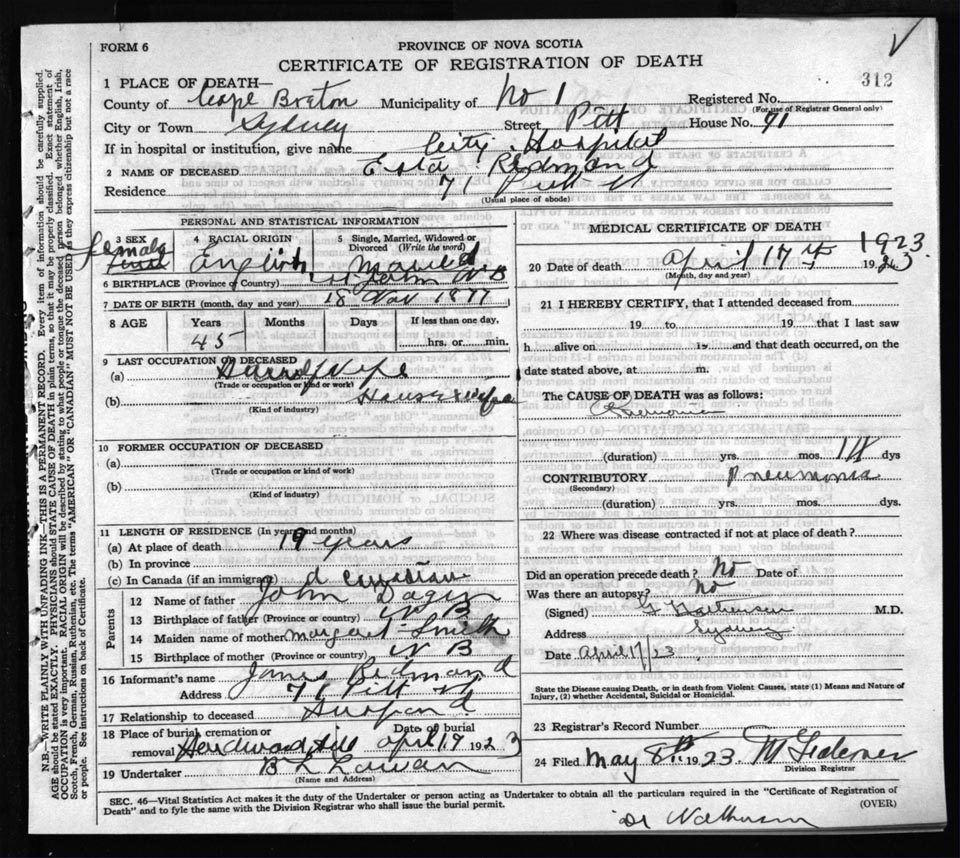 FORM 6
PROVINCE OF NOVA SCOTIA
CERTIFICATE OF REGISTRATION OF DEATH
312
1 PLACE OF DEATH—
County of Cape Breton Municipality of No 1 Registered No.
(For use of Registrar General only)
City or Town Sydney Street Pitt House No. 71
If in hospital or institution, give name City Hospital
2 NAME OF DECEASED Redmond
Residence 71 Pitt St
(Usual place of abode)
PERSONAL AND STATISTICAL INFORMATION
3 SEX female
4 RACIAL ORIGIN English
5 Single, Married, Widowed or Divorced (Write the word) Married
6 BIRTHPLACE (Province or Country) St John N B
7 DATE OF BIRTH (month, day and year) 18 Nov 1877
8 AGE Years Months Days If less than one day,
45 hrs. or min.
9 LAST OCCUPATION OF DECEASED
(a)
(Trade or occupation or kind of work)
(b) House wife
(Kind of industry)
10 FORMER OCCUPATION OF DECEASED
(a)
(Trade or occupation or kind of work)
(b)
(Kind of industry)
11 LENGTH OF RESIDENCE (In years and months)
(a) At place of death 19 years
(b) In province
(c) In Canada (if an immigrant) Canadian
Parents
12 Name of father John
13 Birthplace of father (Province or country) N B
14 Maiden name of mother Margaret Smith
15 Birthplace of mother (Province or country) N B
16 Informant's name James Redmond
Address 71 Pitt St
17 Relationship to deceased Husband
18 Place of burial, cremation or removal Date of burial
April 19 1923
19 Undertaker
(Name and Address)
MEDICAL CERTIFICATE OF DEATH
1923
20 Date of death April 17th 1923
(Month, day and year)
21 I HEREBY CERTIFY, that I attended deceased from
19 to 19 that I last saw
h alive on 19 and that death occurred, on the
date stated above, at m.
The CAUSE OF DEATH was as follows:
(duration) yrs. mos. 14 dys
CONTRIBUTORY Pneumonia
(Secondary)
(duration) yrs. mos. dys.
22 Where was disease contracted if not at place of death?
Did an operation precede death? No Date of
Was there an autopsy? No
(Signed) M.D.
Address Sydney
Date April 17/23
State the Disease causing Death, or in death from Violent Causes, state (1) Means and Nature of
Injury, (2) whether Accidental, Suicidal or Homicidal.
23 Registrar's Record Number
24 Filed May 8th 1923
Division Registrar
SEC. 46—Vital Statistics Act makes it the duty of the Undertaker or person acting as Undertaker to obtain all the particulars required in the "Certificate of Registration of
Death" and to fyle the same with the Division Registrar who shall issue the burial permit.
(OVER)
Dr
N.B.—WRITE PLAINLY WITH UNFADING INK—THIS IS A PERMANENT RECORD. Every item of information should be carefully supplied.
AGE should be stated EXACTLY. PHYSICIANS should STATE CAUSE OF DEATH in plain terms, so that it may be properly classified. Exact statement of
OCCUPATION is very important. RACIAL ORIGIN will be described by stating to what people or tongue the deceased person belonged whether English, Irish,
Scotch, French, German, Russian, Ruthenian, etc. The terms "AMERICAN" OR "CANADIAN" MUST NOT BE USED as they express citizenship but not a race
or people. See instructions on back of Certificate.